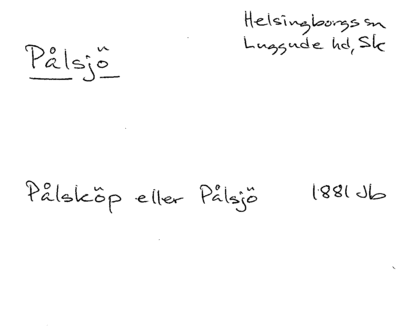 Helsingborgs sn
Luggude hd, Sk
Pålsjö
Pålsköp eller Pålsjö 1881 Jb